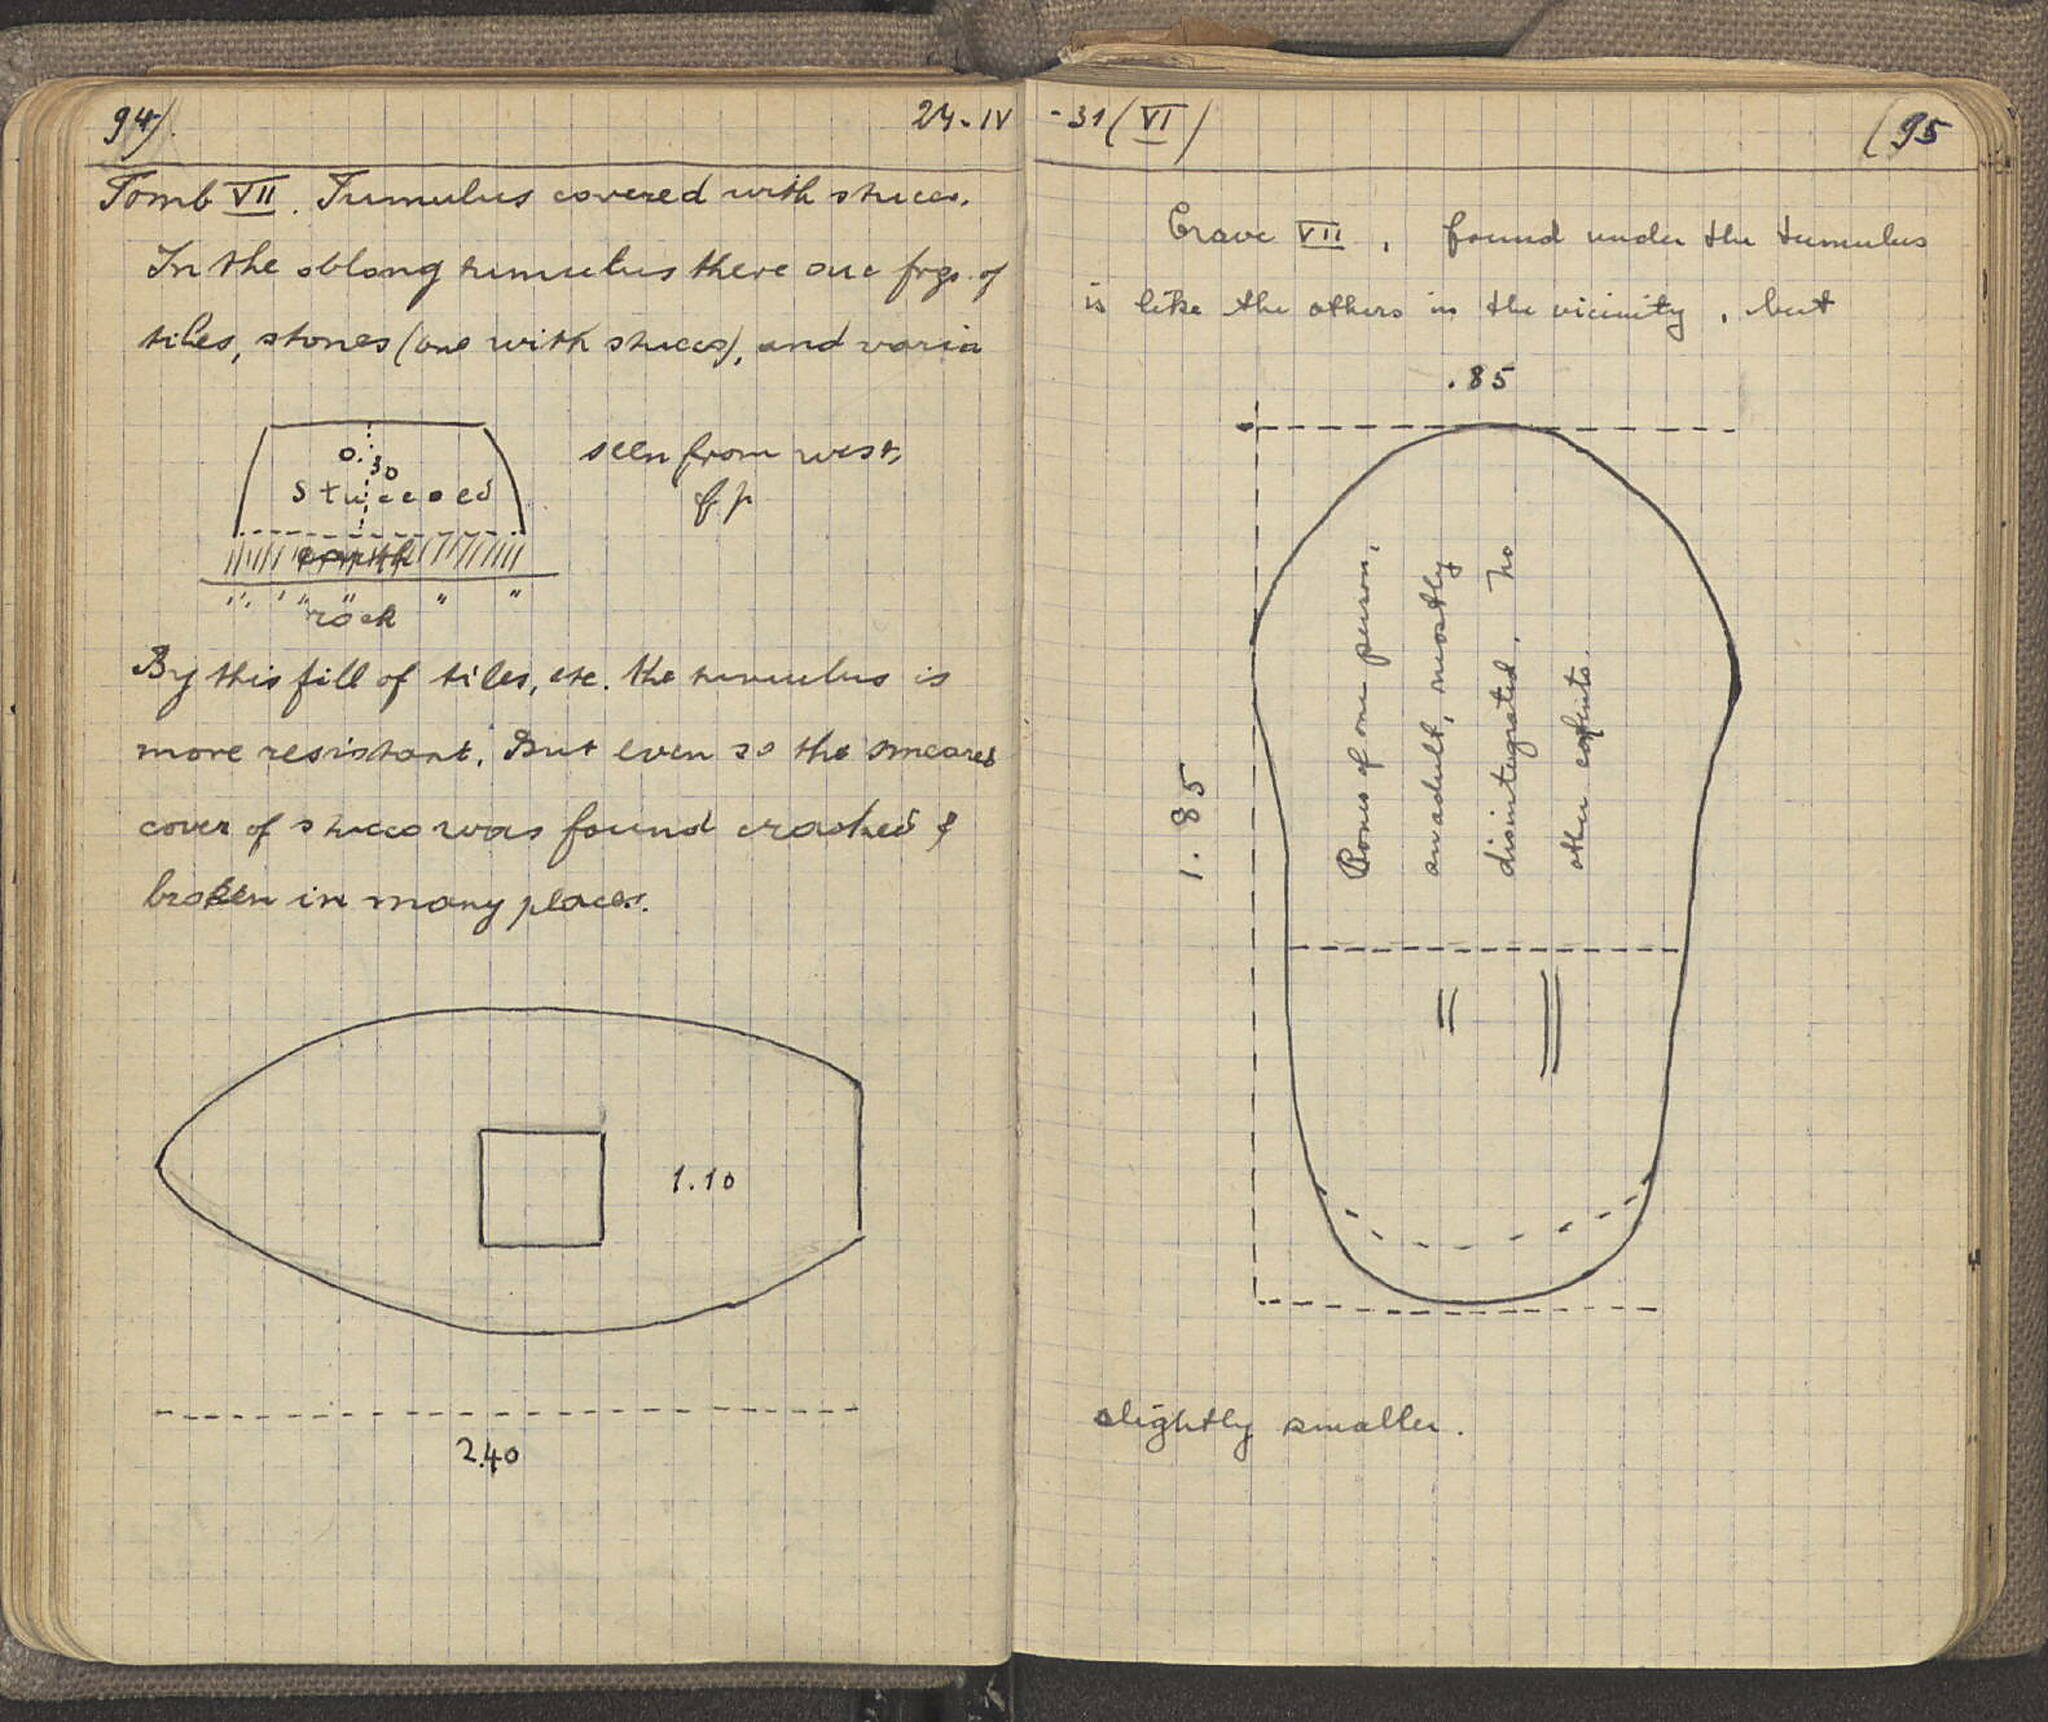 94).
24-IV
Tomb VII. Tumulus covered with stucco.
In the oblong tumulus there are frgs. of
tiles, stones (one with stucco), and varia
0.30
stuccoed
earth
rock
seen from west,
By this fill of tiles, etc. the tumulus is
more resistant. But even so the smeared
cover of stucco was found crashed &
broken in many places.
1.10
2.40
-31 (VI)
(95
Grave VII, found under the tumulus
is like the others in the vicinity, but
.85
1.85
Bones of one person,
an adult, mostly
disintegrated. No
other contents.
slightly smaller.